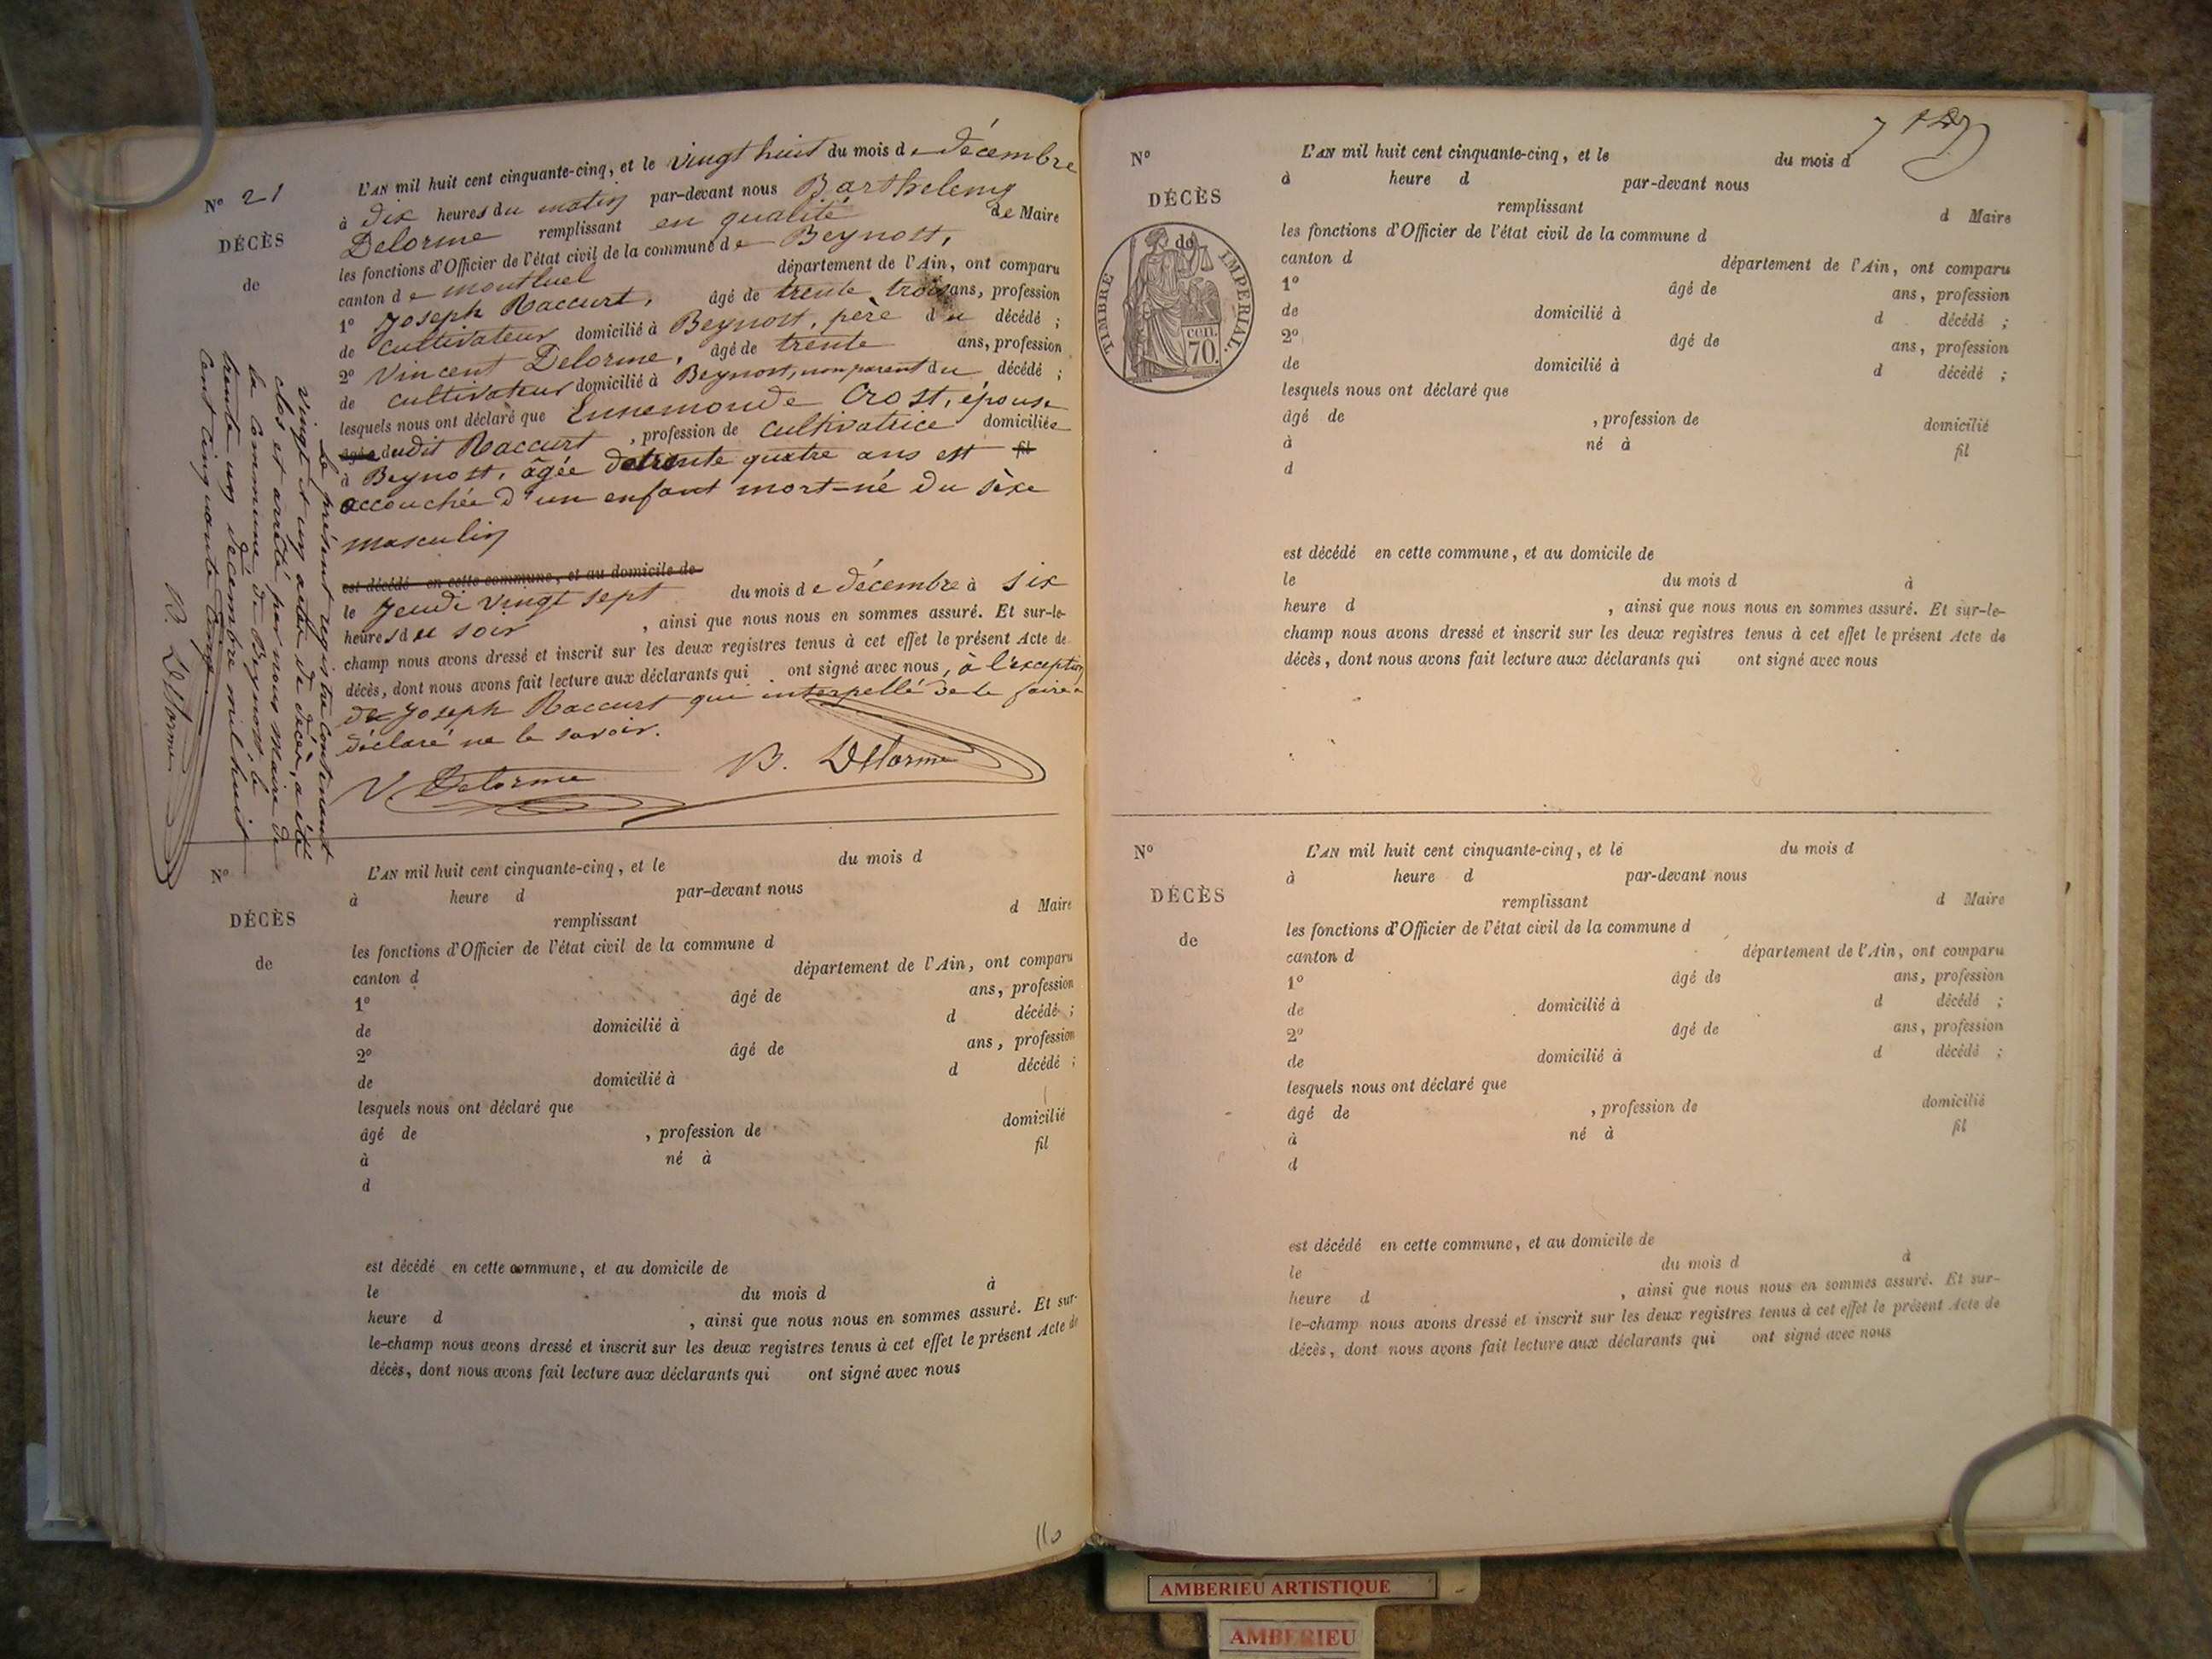 N° 21
DÉCÈS
de
L'AN mil huit cent cinquante-cinq, et le vingt huit du mois de décembre
à dix heures du matin par-devant nous Barthelemy
Delorme remplissant en qualité de Maire
les fonctions d'Officier de l'état civil de la commune de Beynost,
canton de montluel département de l'Ain, ont comparu
1° Joseph Raccurt, âgé de trente trois ans, profession
de cultivateur domicilié à Beynost, père du décédé ;
2° Vincent Delorme, âgé de trente ans, profession
de cultivateur domicilié à Beynost, non parent du décédé ;
lesquels nous ont déclaré que Ennemonde Crost, épouse
dudit Raccurt, profession de cultivatrice domiciliée
à Beynost, âgée de trente quatre ans est fil
accouchée d'un enfant mort-né du sèxe
masculin
est décédé en cette commune, et au domicile de
le Jeudi vingt sept du mois de décembre à six
heures du soir, ainsi que nous nous en sommes assuré. Et sur-le-
champ nous avons dressé et inscrit sur les deux registres tenus à cet effet le présent Acte de
décès, dont nous avons fait lecture aux déclarants qui ont signé avec nous, à l'exception
de Joseph Raccurt qui interpellé de le faire a
déclaré ne le savoir.
V Delorme B. Delorme
Le présent registre contenant
vingt et un actes de décès, a été
clos et arrêté par nous maire de
la commune de Beynost le
trente un décembre mil huit
cent cinquante cinq.
B. Delorme
N°
DÉCÈS
de
L'AN mil huit cent cinquante-cinq, et le du mois d
à heure d par-devant nous
remplissant d Maire
les fonctions d'Officier de l'état civil de la commune d
canton d département de l'Ain, ont comparu
1° âgé de ans, profession
de domicilié à d décédé ;
2° âgé de ans, profession
de domicilié à d décédé ;
lesquels nous ont déclaré que
âgé de , profession de domicilié
à né à fil
d
est décédé en cette commune, et au domicile de
le du mois d à
heure d , ainsi que nous nous en sommes assuré. Et sur-
le-champ nous avons dressé et inscrit sur les deux registres tenus à cet effet le présent Acte de
décès, dont nous avons fait lecture aux déclarants qui ont signé avec nous
110
N°
DÉCÈS
de
TIMBRE IMPERIAL.
cen.
70.
L'AN mil huit cent cinquante-cinq, et le du mois d
à heure d par-devant nous
remplissant d Maire
les fonctions d'Officier de l'état civil de la commune d
canton d département de l'Ain, ont comparu
1° âgé de ans, profession
de domicilié à d décédé ;
2° âgé de ans, profession
de domicilié à d décédé ;
lesquels nous ont déclaré que
âgé de , profession de domicilié
à né à fil
d
est décédé en cette commune, et au domicile de
le du mois d à
heure d , ainsi que nous nous en sommes assuré. Et sur-le-
champ nous avons dressé et inscrit sur les deux registres tenus à cet effet le présent Acte de
décès, dont nous avons fait lecture aux déclarants qui ont signé avec nous
N°
DÉCÈS
de
L'AN mil huit cent cinquante-cinq, et le du mois d
à heure d par-devant nous
remplissant d Maire
les fonctions d'Officier de l'état civil de la commune d
canton d département de l'Ain, ont comparu
1° âgé de ans, profession
de domicilié à d décédé ;
2° âgé de ans, profession
de domicilié à d décédé ;
lesquels nous ont déclaré que
âgé de , profession de domicilié
à né à fil
d
est décédé en cette commune, et au domicile de
le du mois d à
heure d , ainsi que nous nous en sommes assuré. Et sur-
le-champ nous avons dressé et inscrit sur les deux registres tenus à cet effet le présent Acte de
décès, dont nous avons fait lecture aux déclarants qui ont signé avec nous
AMBERIEU ARTISTIQUE
AMBERIEU